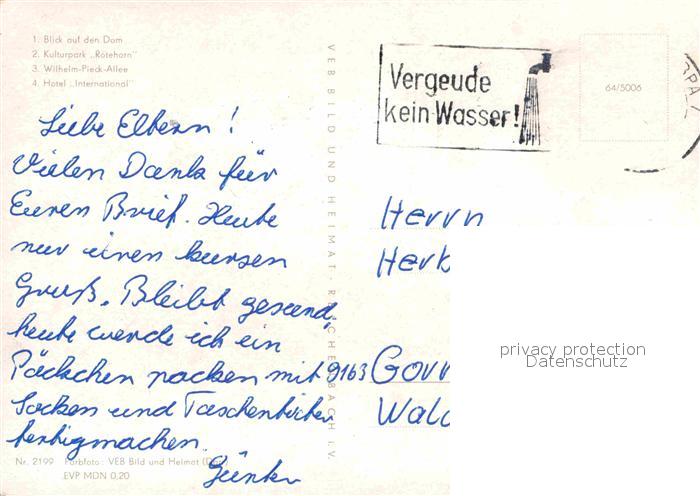 1. Blick auf den Dom
2. Kulturpark „Rotehorn"
3. Wilhelm-Pieck-Allee
4. Hotel „International"
VEB BILD UND HEIMAT · REICHENBACH I. V.
Vergeude
kein Wasser!
64/5006
Liebe Eltern!
Vielen Dank für
Euren Brief. Heute
nur einen kurzen
Gruß. Bleibt gesund,
heute werde ich ein
Päckchen packen mit
Socken und Taschentücher
fertigmachen.
Günter
Herrn
Herb
9163 Gorn
Wald
privacy protection
Datenschutz
Nr. 2199 Farbfoto: VEB Bild und Heimat
EVP MDN 0,20